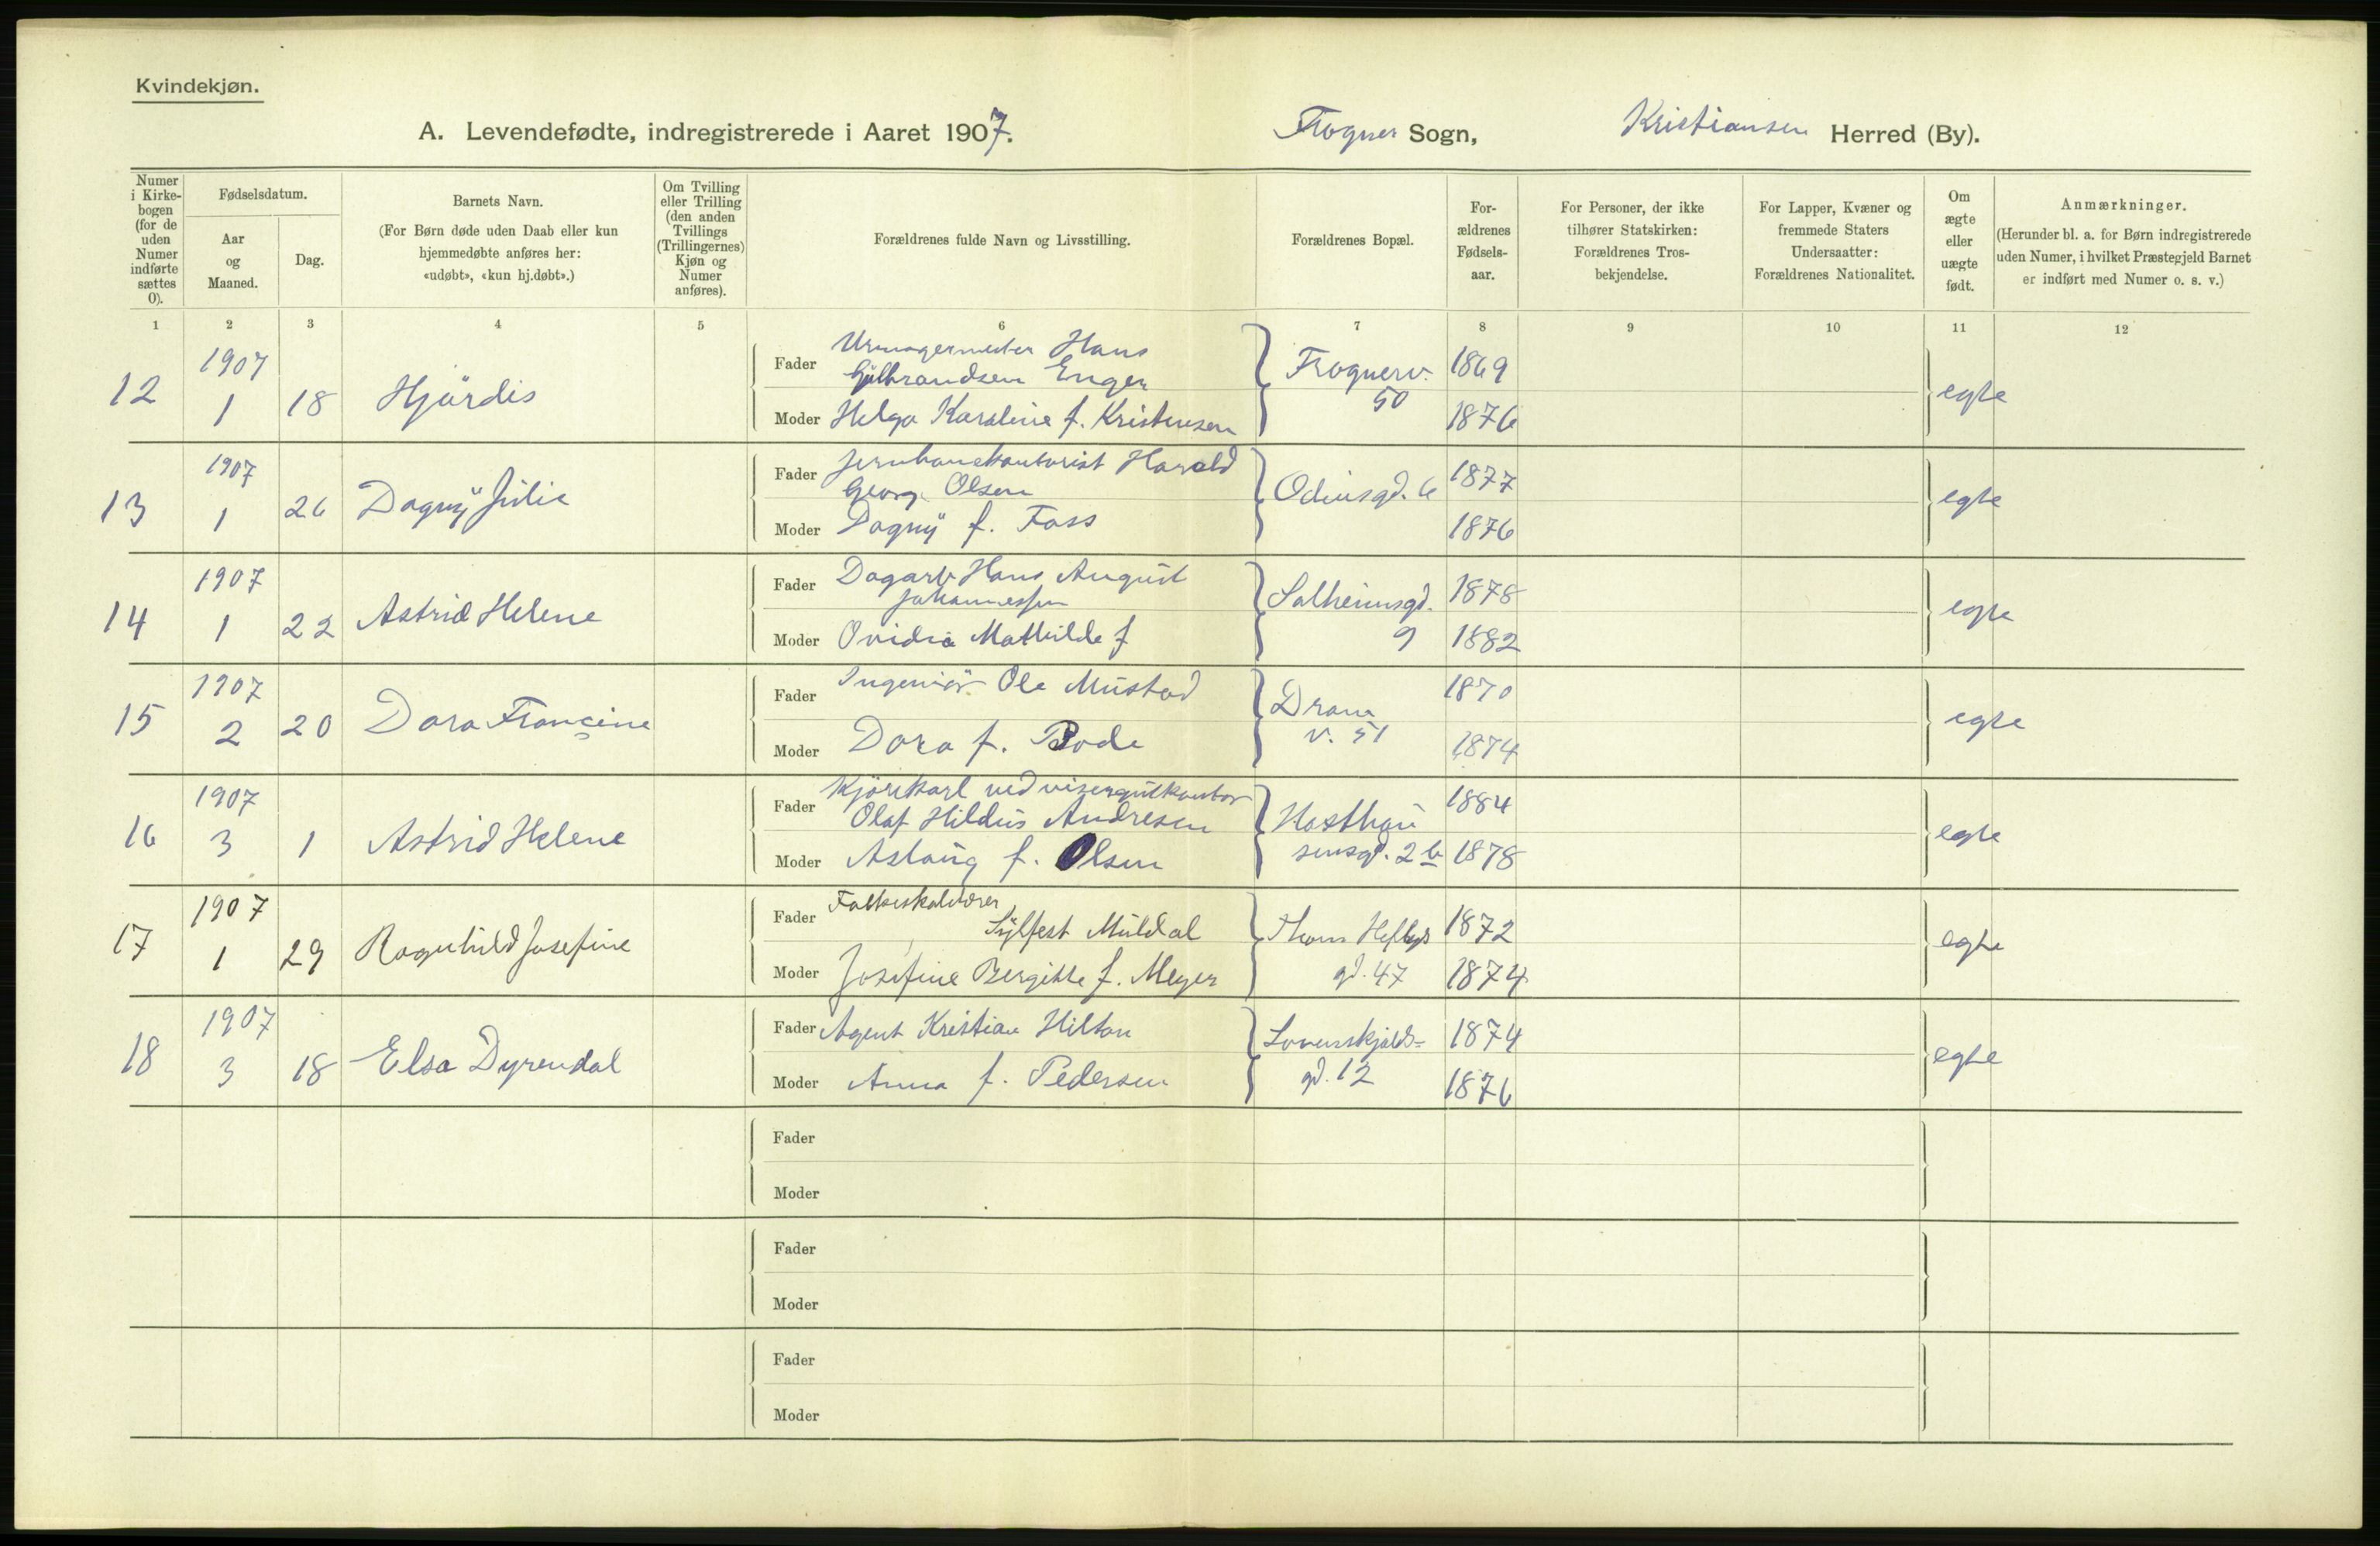 Kvindekjøn.
A. Levendefødte, indregistrerede i Aaret 1907. Frogner Sogn, Herred (By).
Numer i Kirke-bogen (for de uden Numer indførte sættes 0).
Fødselsdatum.
Aar og Maaned.
Dag.
Barnets Navn.
(For Børn døde uden Daab eller kun
hjemmedøbte anføres her:
«udøbt», «kun hj.døbt».)
Om Tvilling
eller Trilling
(den anden
Tvillings
(Trillingernes)
Kjøn og
Numer
anføres).
Forældrenes fulde Navn og Livsstilling.
Forældrenes Bopæl.
For-
ældrenes
Fødsels-
aar.
For Personer, der ikke
tilhører Statskirken:
Forældrenes Tros-
bekjendelse.
For Lapper, Kvæner og
fremmede Staters
Undersaatter:
Forældrenes Nationalitet.
Om
ægte
eller
uægte
født.
Anmærkninger.
(Herunder bl. a. for Børn indregistrerede
uden Numer, i hvilket Præstegjeld Barnet
er indført med Numer o. s. v.)
1 2 3 4 5 6 7 8 9 10 11 12
12 1907 1 18 Hjördis
Fader Urmagermester Hans
Gulbrandsen Enger
Moder Helga Karoline f. Kristensen
Frognerv.
50
1869
1876
egte
13 1907 1 26 Dagny Julie
Fader Jernbanekontorist Harald
Georg Olsen
Moder Dagny f. Foss
Odinsgd. 6
1877
1876
egte
14 1907 1 22 Astrid Helene
Fader Dagarb. Hans August
Johannessen
Moder Ovidia Mathilde f
Solheimsgd.
9
1878
1882
egte
15 1907 2 20 Dora Francine
Fader Ingeniör Ole Mustad
Moder Dora f. Bode
Dram
v. 51
1870
1874
egte
16 1907 3 1 Astrid Helene
Fader Kjörekarl ved visergutkontor
Olaf Hildus Andresen
Moder Aslaug f. Olsen
sensgd. 2 b
1884
1878
egte
17 1907 1 29 Ragnhild Josefine
Fader
Sylfest Muldal
Moder Josefine Bergitte f. Meyer
Thom Heftyes
gd. 47
1872
1874
egte
18 1907 3 18 Elsa Dyrendal
Fader Agent Kristian Hilton
Moder Anna f. Pedersen
Lovenskjolds-
gd. 12
1874
1876
egte
Fader
Moder
Fader
Moder
Fader
Moder